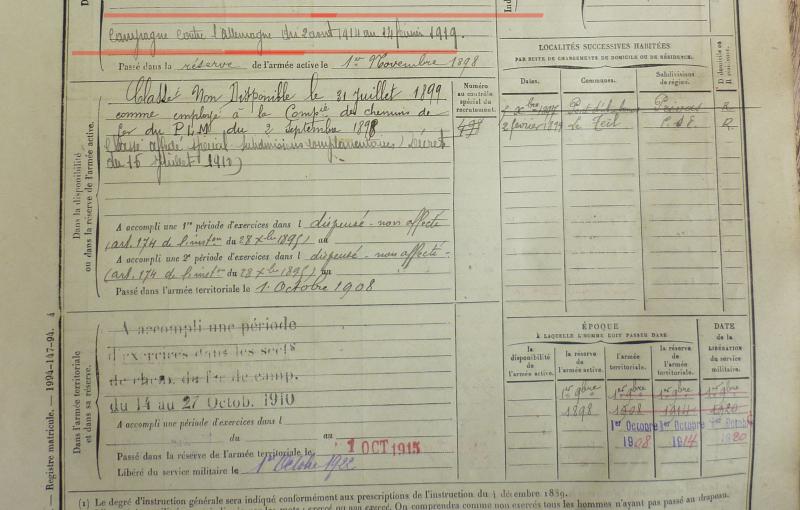 Campagne contre l'allemagne du 2 aout 1914 au 24 février 1919.
Passé dans la réserve de l'armée active le 1er Novembre 1898
Dans la disponibilité
ou dans la réserve de l'armée active.
Classé Non Disponible le 31 Juillet 1899
comme employé à la Compie des chemins de
fer du P.L.M. du 2 Septembre 1898
Classé affecté spécial subdivisions complémentaires (Décret
du 16 Juillet 1910)
Numéro
au contrôle
spécial du
recrutement.
A accompli une 1re période d'exercices dans l dispensé - non affecté
(art. 174 de l'inston du 28 Xbre 1895) au
A accompli une 2e période d'exercices dans l dispensé - non affecté -
(art. 174 de l'inston du 28 Xbre 1895) au
Passé dans l'armée territoriale le 1. Octobre 1908
LOCALITÉS SUCCESSIVES HABITÉES
PAR SUITE DE CHANGEMENTS DE DOMICILE OU DE RÉSIDENCE.
Dates.
Communes.
Subdivisions
de région.
D domicile ou
R résidence.
Privas R
2 février 1899 Le Teil R
Dans l'armée territoriale
et dans sa réserve.
A accompli une période
d'exercices dans les sects
de chem. de fer de camp.
du 14 au 27 Octob. 1910
A accompli une période d'exercices dans l
du au
Passé dans la réserve de l'armée territoriale le 1 OCT 1915
Libéré du service militaire le 1er Octobre 1922
ÉPOQUE
À LAQUELLE L'HOMME DOIT PASSER DANS
la disponibilité
de l'armée active.
la réserve de
l'armée active.
l'armée
territoriale.
la réserve de
l'armée
territoriale.
DATE
de la
LIBÉRATION
du service
militaire.
1er 9bre 1er 9bre 1er 9bre 1er 9bre
1898 1908 1914 1920
1er Octobre 1er Octobre 1er Octobre
1908 1914 1920
— Registre matricule. — 1994-147-94. 4
(1) Le degré d'instruction générale sera indiqué conformément aux prescriptions de l'instruction du 4 décembre 1889.